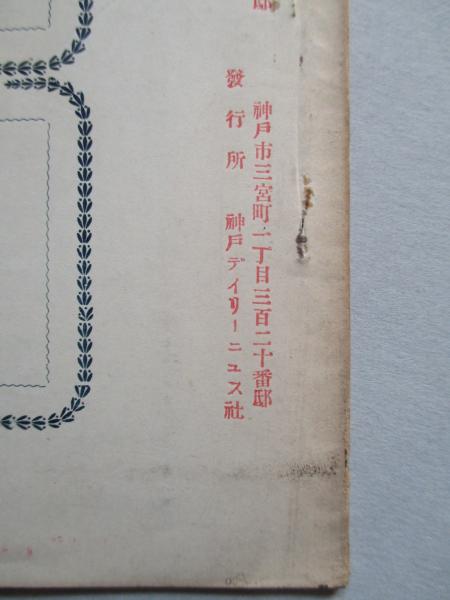 邸
神戸市三宮町一丁目三百二十番邸
發行所 神戸デイリーニュス社